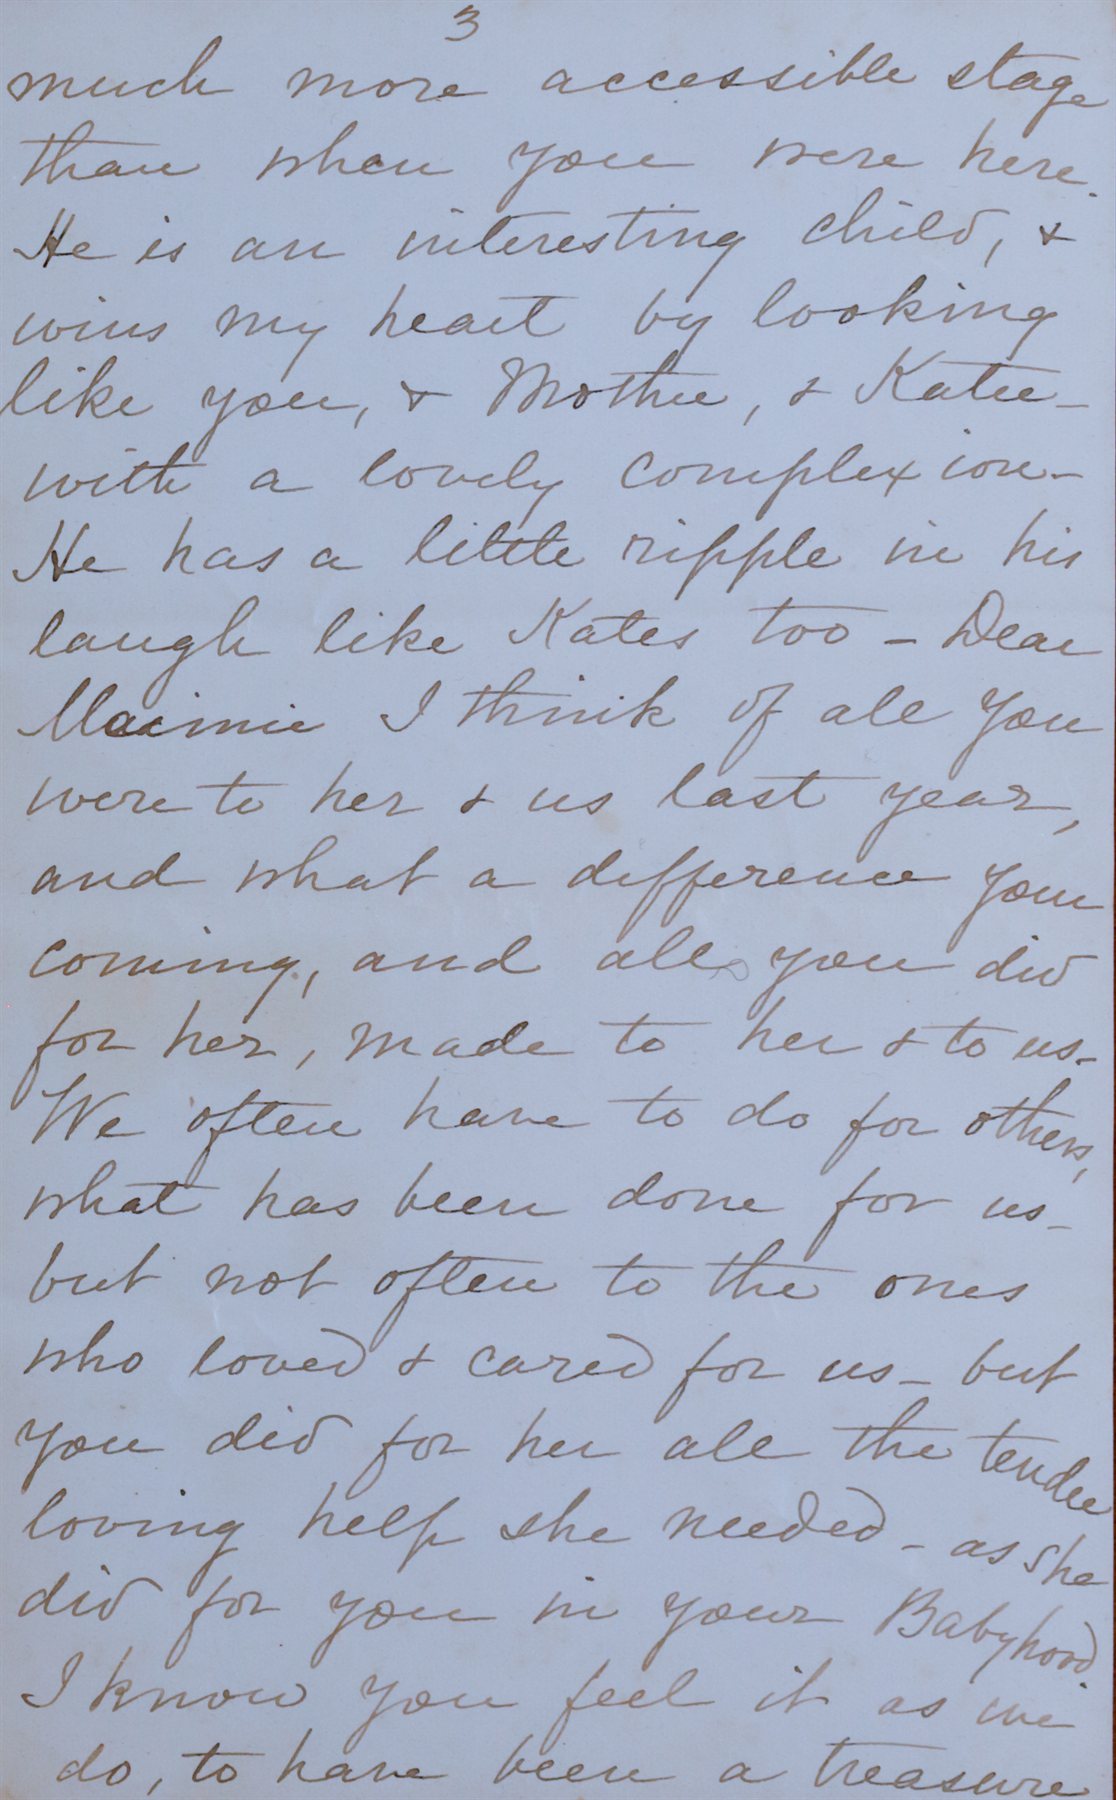 3
much more accessible stage
than when you were here.
He is an interesting child, &
wins my heart by looking
like you, & Mother, & Katie -
with a lovely complexion -
He has a little ripple in his
laugh like Kates too - Dear
Maimie I think of all you
were to her & us last year,
and what a difference your
coming, and all you did
for her, made to her & to us -
We often have to do for others,
what has been done for us -
but not often to the ones
who loved & cared for us - but
you did for her all the tender
loving help she needed - as she
did for you in your Babyhood
I know you feel it as we
do, to have been a treasure